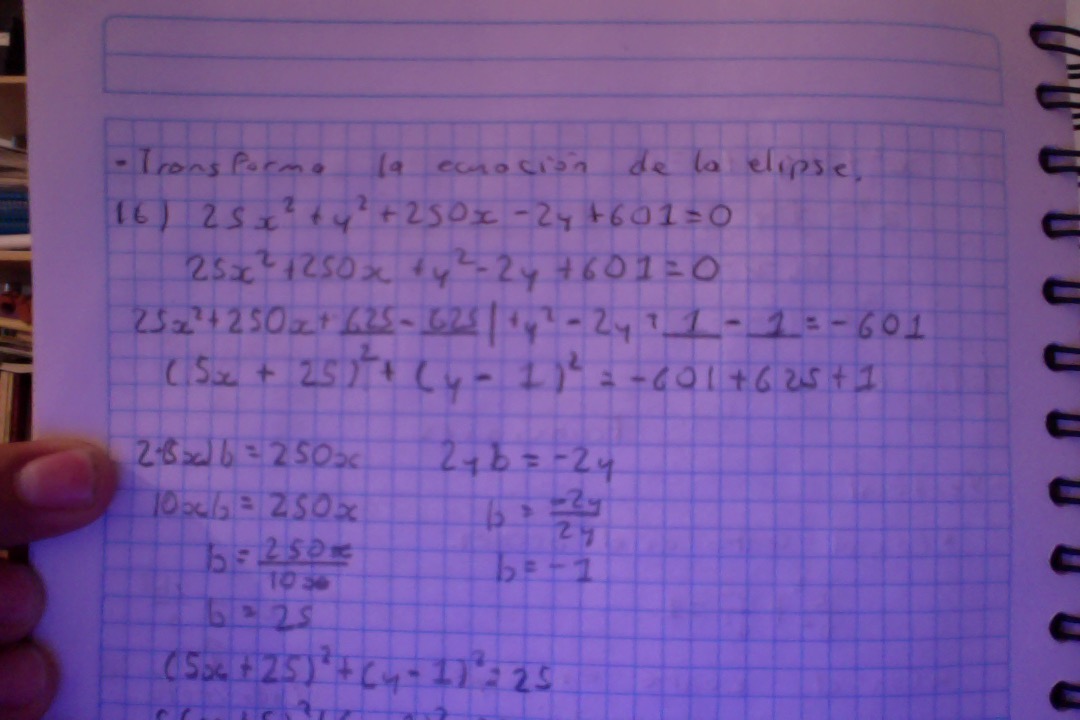 - Transforma la ecuación de la elipse.
16) 25x² + y² + 250x - 2y + 601 = 0
25x² + 250x + y² - 2y + 601 = 0
25x² + 250x + 625 - 625 | + y² - 2y + 1 - 1 = -601
(5x + 25)² + (y - 1)² = -601 + 625 + 1
2(5x)b = 250x 2yb = -2y
10xb = 250x b = -2y/2y
b = 250x/10x b = -1
b = 25
(5x + 25)² + (y - 1)² = 25